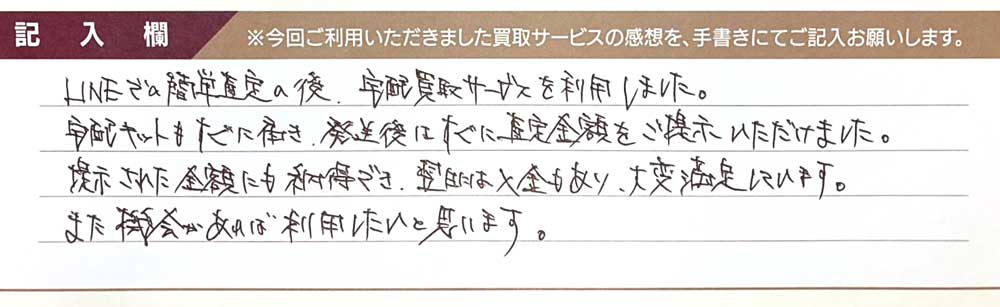 記入欄
※今回ご利用いただきました買取サービスの感想を、手書きにてご記入お願いします。
LINEでの簡単査定の後、宅配買取サービスを利用しました。
宅配キットもすぐに届き、発送後はすぐに査定金額をご提示いただけました。
提示された金額にも納得でき、翌日には入金もあり、大変満足しています。
また機会があれば利用したいと思います。